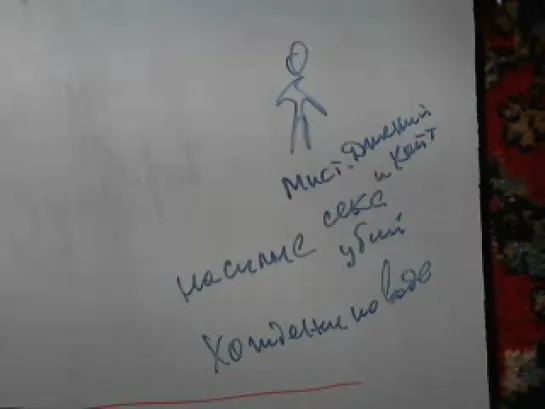 Мист. Джекил
и Хайт
насилие секс
убий
Хождение по воде